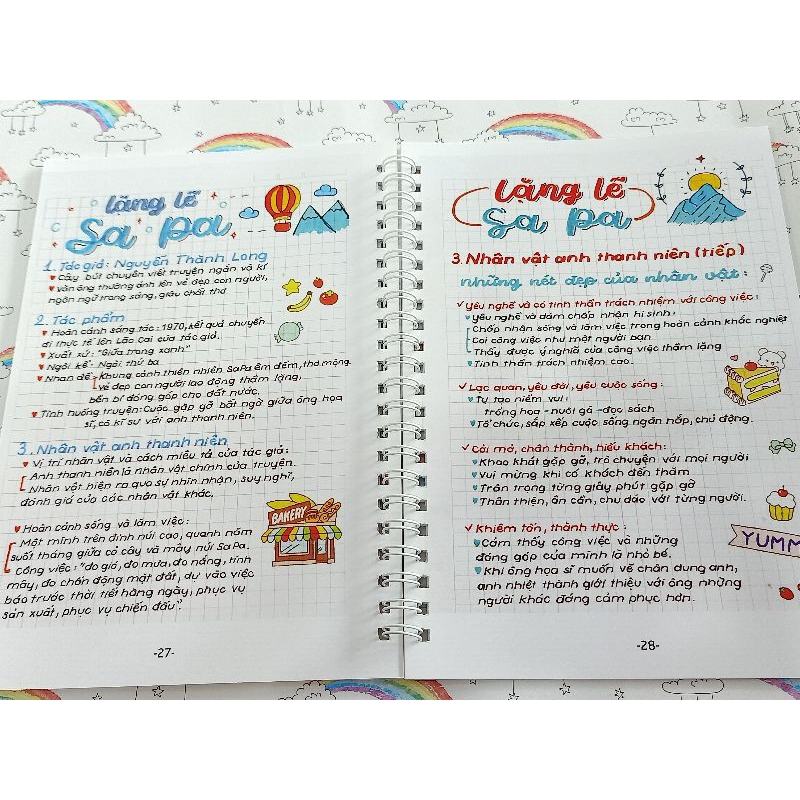 Lặng lẽ
Sa Pa
1. Tác giả: Nguyễn Thành Long
♥ Cây bút chuyên viết truyện ngắn và kí
♥ Văn ông thường ánh lên vẻ đẹp con người,
ngôn ngữ trong sáng, giàu chất thơ
2. Tác phẩm
♥ Hoàn cảnh sáng tác: 1970, kết quả chuyến
đi thực tế lên Lào Cai của tác giả.
♥ Xuất xứ: "Giữa trong xanh"
♥ Ngôi kể: Ngôi thứ ba
♥ Nhan đề: Khung cảnh thiên nhiên Sa Pa êm đềm, thơ mộng
vẻ đẹp con người lao động thầm lặng,
bền bỉ đóng góp cho đất nước.
♥ Tình huống truyện: Cuộc gặp gỡ bất ngờ giữa ông họa
sĩ, cô kĩ sư với anh thanh niên.
3. Nhân vật anh thanh niên
♥ Vị trí nhân vật và cách miêu tả của tác giả:
Anh thanh niên là nhân vật chính của truyện.
Nhân vật hiện ra qua sự nhìn nhận, suy nghĩ,
đánh giá của các nhân vật khác.
♥ Hoàn cảnh sống và làm việc:
Một mình trên đỉnh núi cao, quanh năm
suốt tháng giữa cỏ cây và mây núi Sa Pa.
Công việc: "đo gió, đo mưa, đo nắng, tính
mây, đo chấn động mặt đất, dự vào việc
báo trước thời tiết hằng ngày, phục vụ
sản xuất, phục vụ chiến đấu".
BAKERY
-27-
Lặng lẽ
Sa Pa
3. Nhân vật anh thanh niên (tiếp)
những nét đẹp của nhân vật:
✓ Yêu nghề và có tinh thần trách nhiệm với công việc:
♥ Yêu nghề và dám chấp nhận hi sinh:
Chấp nhận sống và làm việc trong hoàn cảnh khắc nghiệt
Coi công việc như một người bạn
Thấy được ý nghĩa của công việc thầm lặng
♥ Tinh thần trách nhiệm cao.
✓ Lạc quan, yêu đời, yêu cuộc sống:
♥ Tự tạo niềm vui:
trồng hoa - nuôi gà - đọc sách
♥ Tổ chức, sắp xếp cuộc sống ngăn nắp, chủ động.
✓ Cởi mở, chân thành, hiếu khách:
♥ Khao khát gặp gỡ, trò chuyện với mọi người
♥ Vui mừng khi có khách đến thăm
♥ Trân trọng từng giây phút gặp gỡ
♥ Thân thiện, ân cần, chu đáo với từng người.
✓ Khiêm tốn, thành thực:
♥ Cảm thấy công việc và những
đóng góp của mình là nhỏ bé.
♥ Khi ông họa sĩ muốn vẽ chân dung anh,
anh nhiệt thành giới thiệu với ông những
người khác đáng cảm phục hơn.
YUMM
-28-